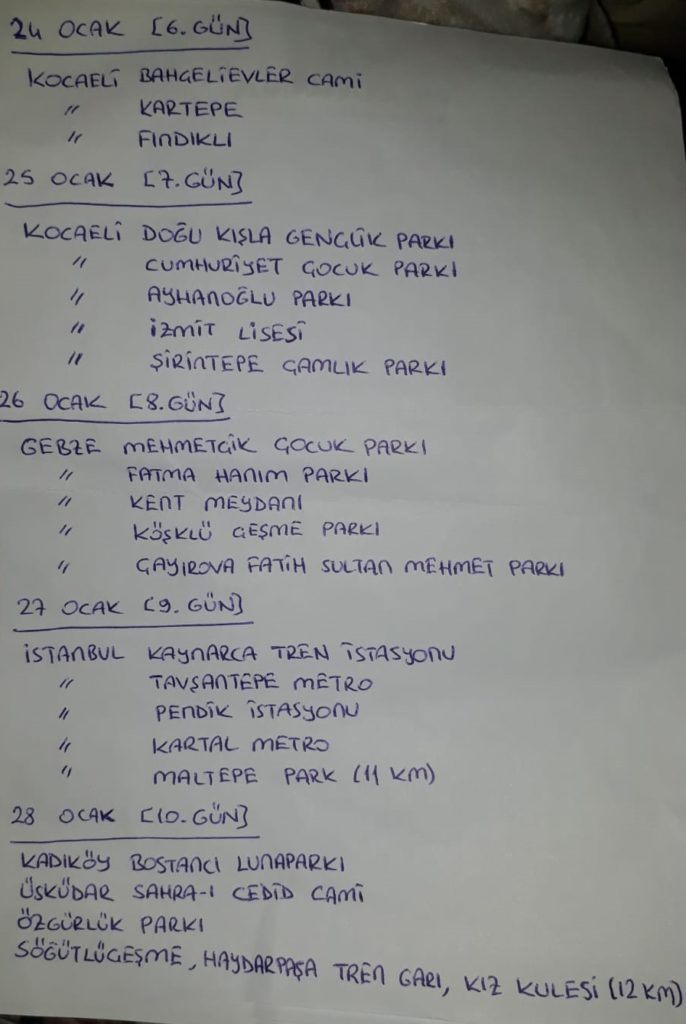 24 OCAK [6.GÜN]
KOCAELİ BAHÇELİEVLER CAMİ
" KARTEPE
" FINDIKLI
25 OCAK [7.GÜN]
KOCAELİ DOĞU KIŞLA GENÇLİK PARKI
" CUMHURİYET ÇOCUK PARKI
" AYHANOĞLU PARKI
" İZMİT LİSESİ
" ŞİRİNTEPE ÇAMLIK PARKI
26 OCAK [8.GÜN]
GEBZE MEHMETÇİK ÇOCUK PARKI
" FATMA HANIM PARKI
" KENT MEYDANI
" KÖŞKLÜ ÇEŞME PARKI
" ÇAYIROVA FATİH SULTAN MEHMET PARKI
27 OCAK [9.GÜN]
İSTANBUL KAYNARCA TREN İSTASYONU
" TAVŞANTEPE METRO
" PENDİK İSTASYONU
" KARTAL METRO
" MALTEPE PARK (11 KM)
28 OCAK [10.GÜN]
KADIKÖY BOSTANCI LUNAPARKI
ÜSKÜDAR SAHRA-I CEDİD CAMİ
ÖZGÜRLÜK PARKI
SÖĞÜTLÜÇEŞME, HAYDARPAŞA TREN GARI, KIZ KULESİ (12 KM)